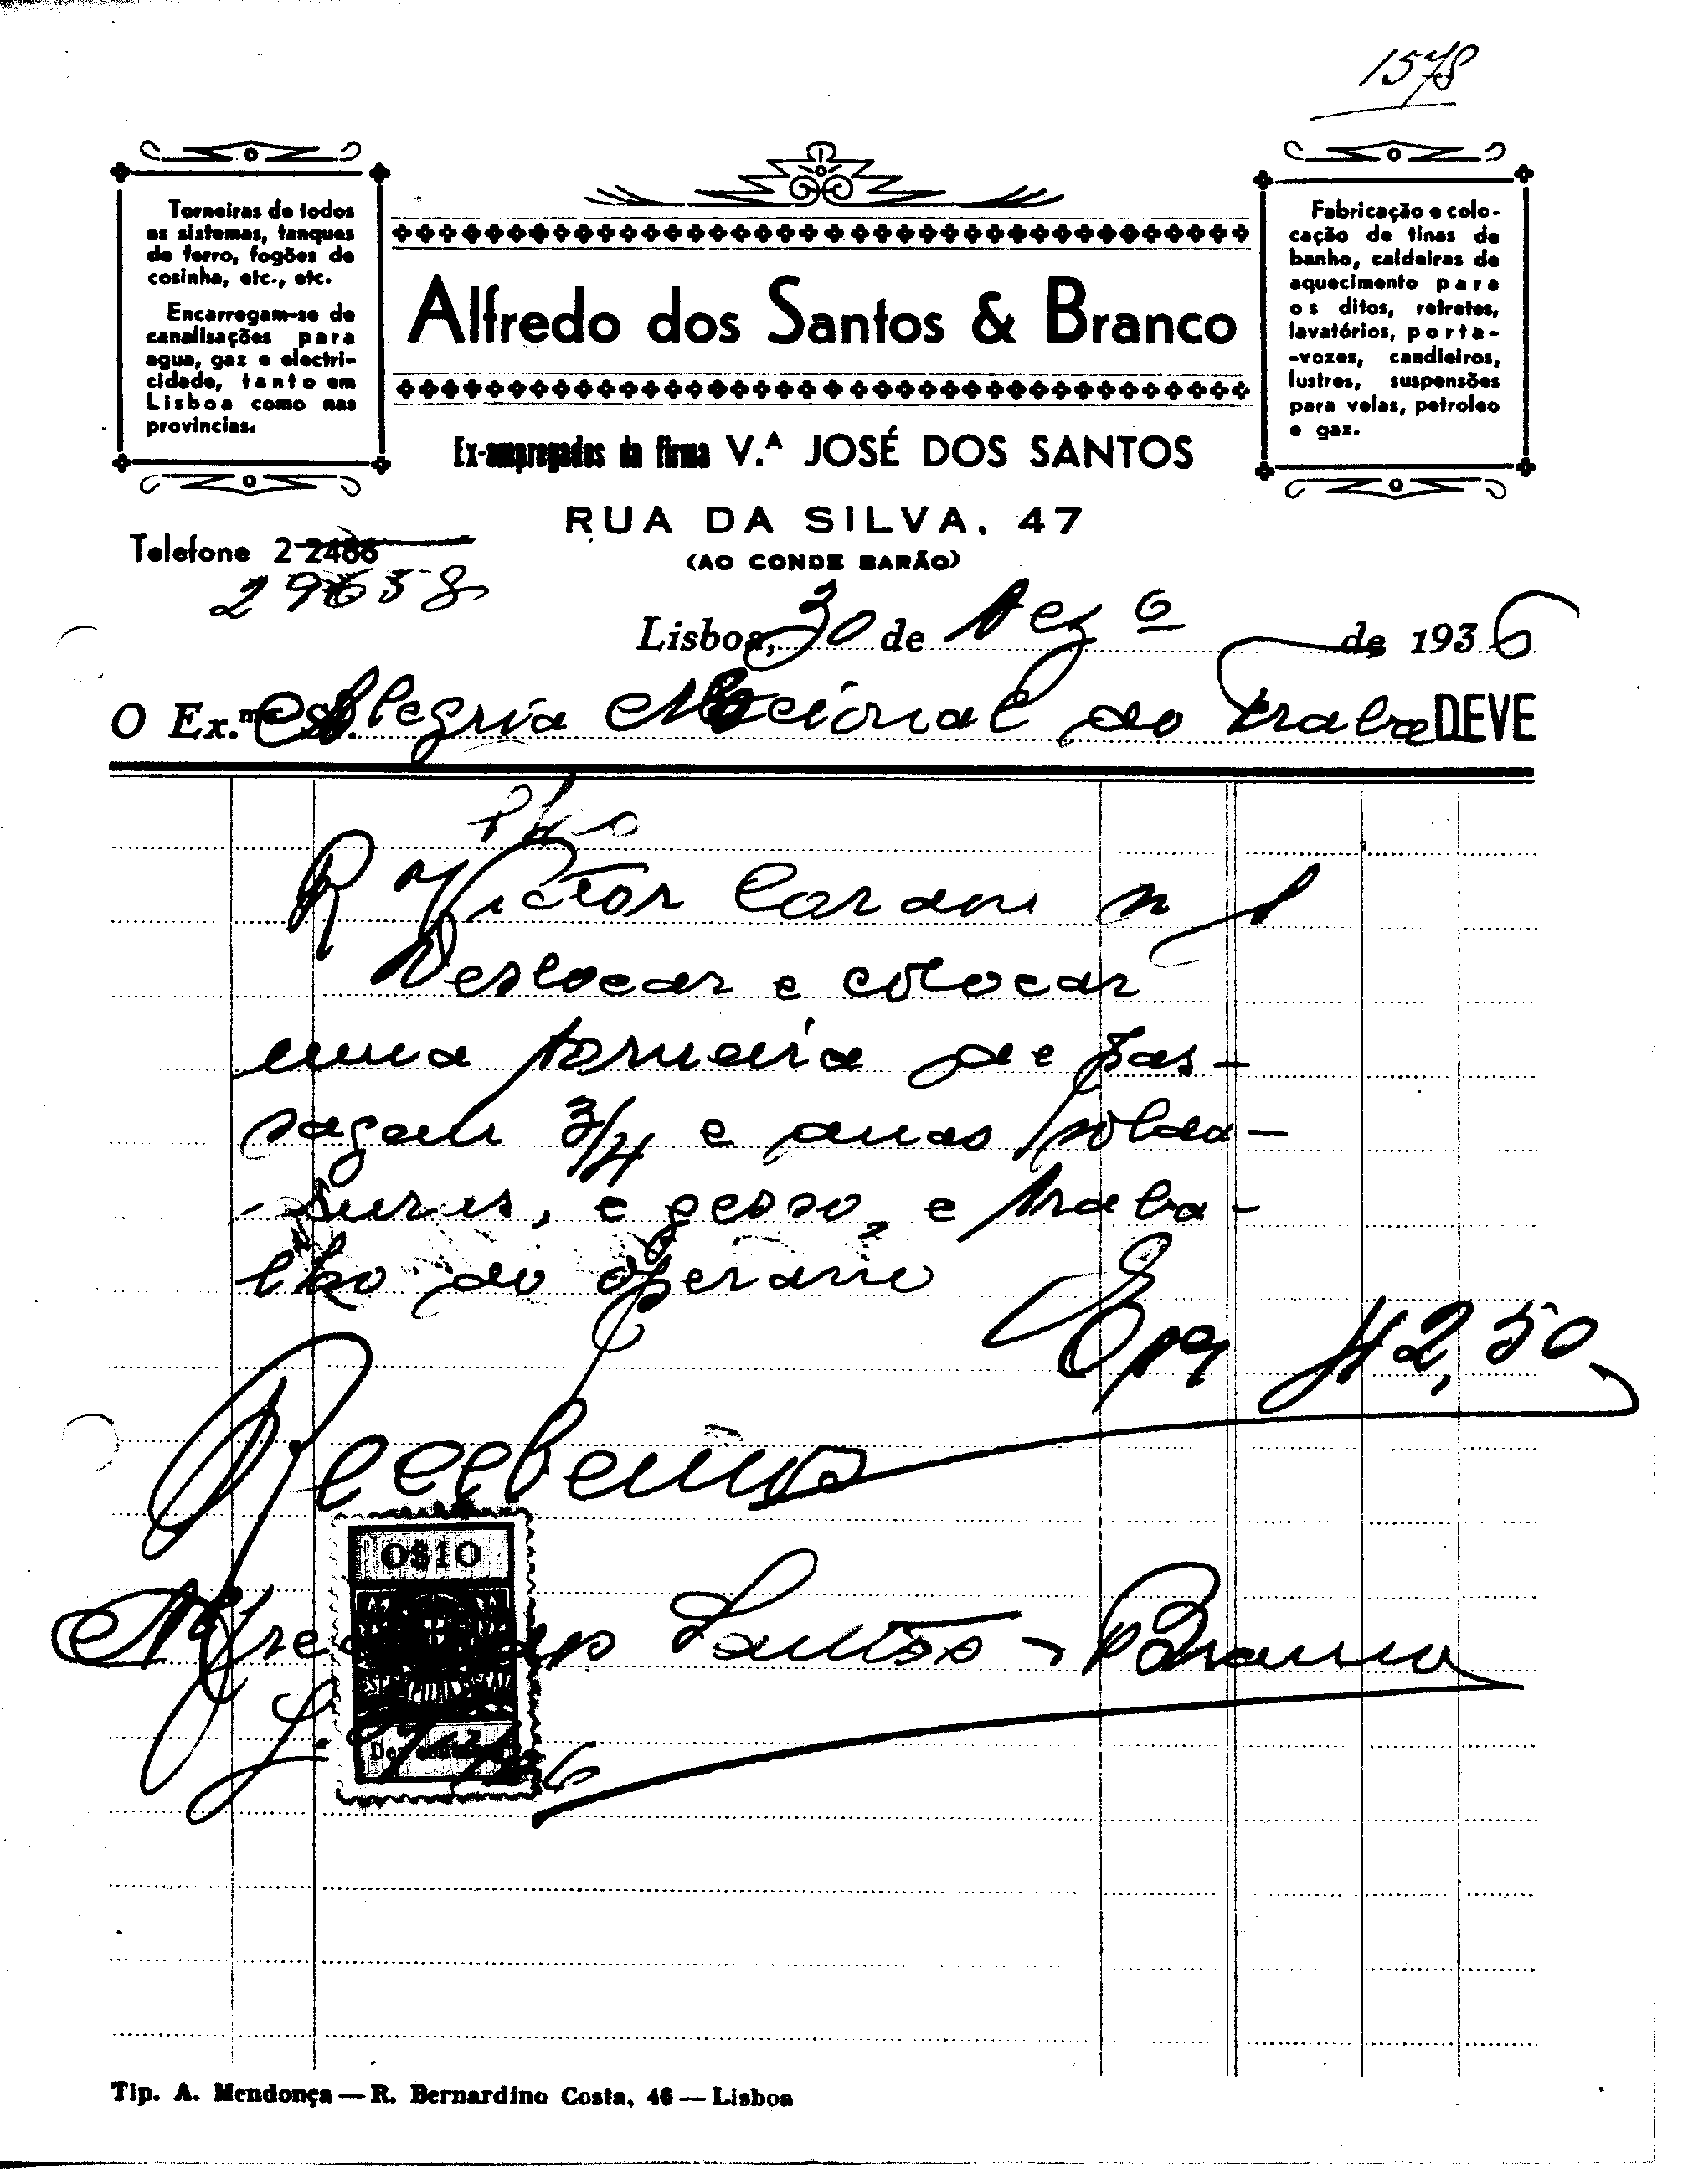 1578
Torneiras de todos
os sistemas, tanques
de ferro, fogões de
cosinha, etc., etc.
Encarregam-se de
canalisações para
agua, gaz e electri-
cidade, tanto em
Lisboa como nas
provincias.
Alfredo dos Santos & Branco
Ex-empregados da firma V.ᴬ JOSÉ DOS SANTOS
RUA DA SILVA, 47
(AO CONDE BARÃO)
Fabricação e colo-
cação de tinas de
banho, caldeiras de
aquecimento para
os ditos, retretes,
lavatórios, porta-
-vozes, candieiros,
lustres, suspensões
para velas, petroleo
e gaz.
Telefone 2 2486
29658
Lisboa, 30 de Dezº de 1936
O Ex.mo Sr. Alegria Nacional do Trabao DEVE
R Victor Cordon n 1
Deslocar e colocar
uma torneira de pas-
sagem 3/4 e duas solda-
-duras, e gesso, e traba-
lho do operario
Esc 42,50
Recebemos
0$10
Alfredo dos Santos & Branco
Tip. A. Mendonça — R. Bernardino Costa, 46 — Lisboa